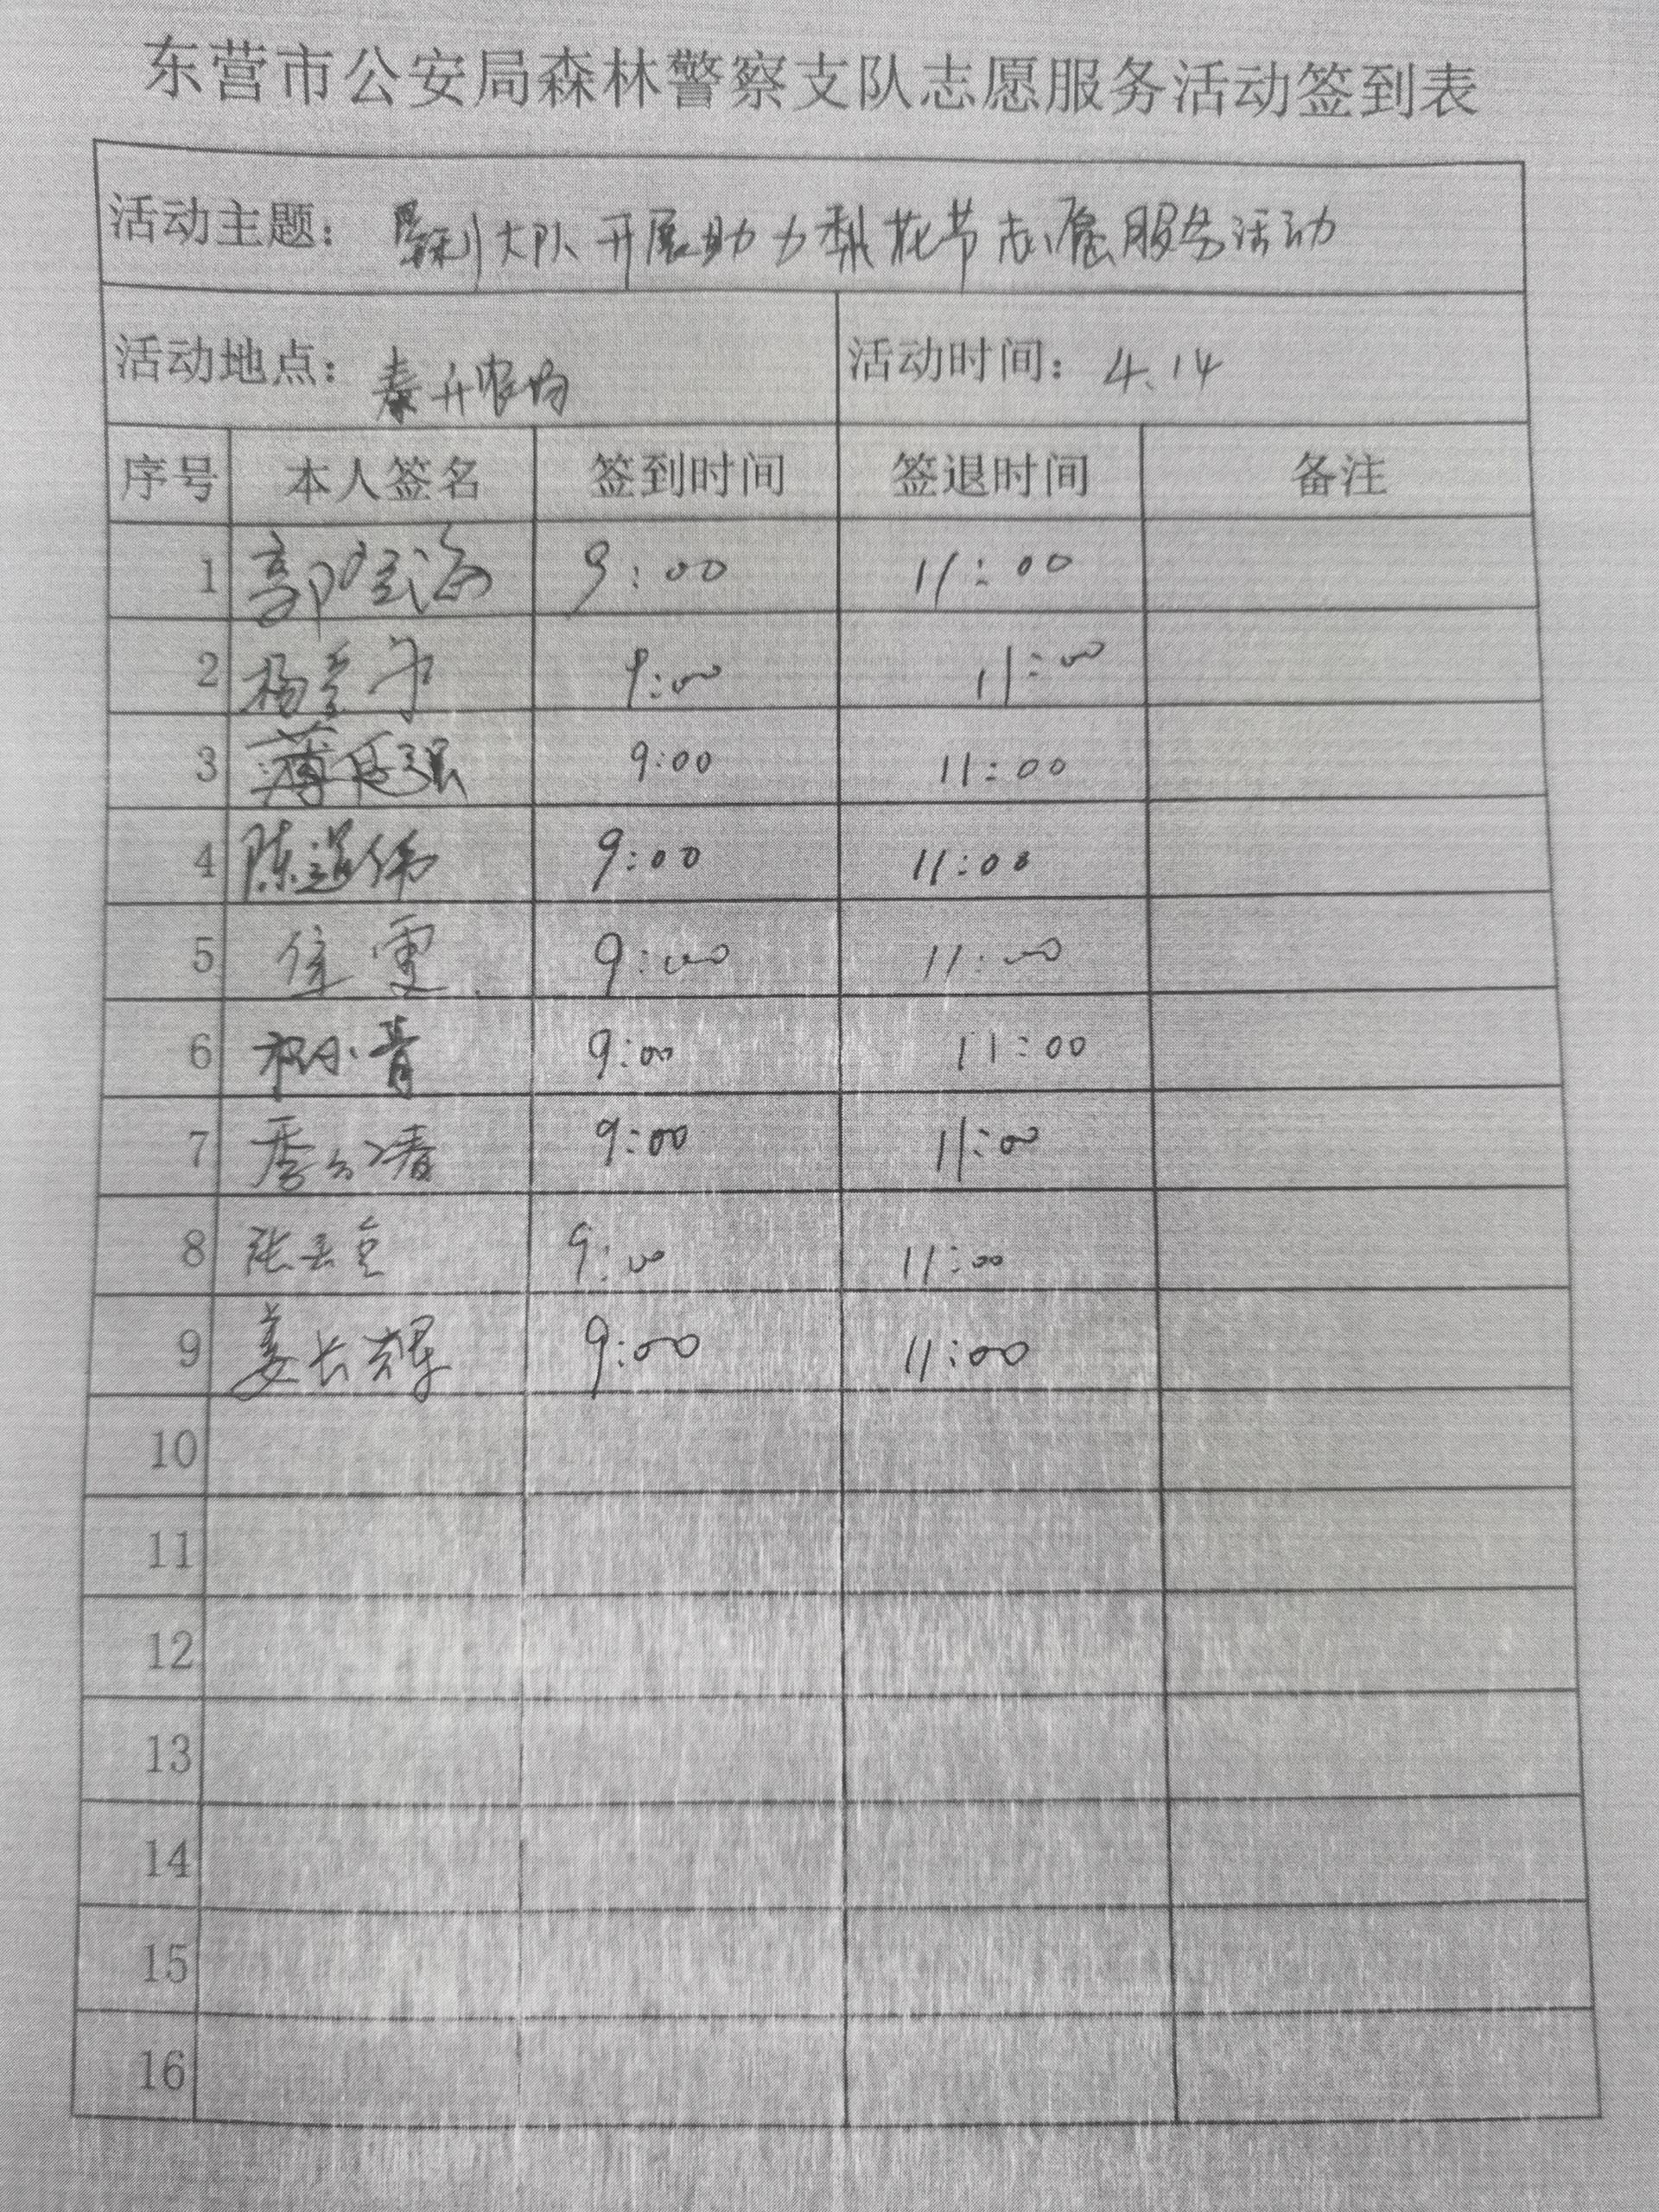 东营市公安局森林警察支队志愿服务活动签到表
活动主题： 大队开展助力梨花节志愿服务活动
活动地点： 农场 活动时间：4.14
序号 本人签名 签到时间 签退时间 备注
1 郭 海 9:00 11:00
2 杨 9:00 11:00
3 薄 强 9:00 11:00
4 陈道伟 9:00 11:00
5 9:00 11:00
6 9:00 11:00
7 季 9:00 11:00
8 张 9:00 11:00
9 姜长辉 9:00 11:00
10
11
12
13
14
15
16